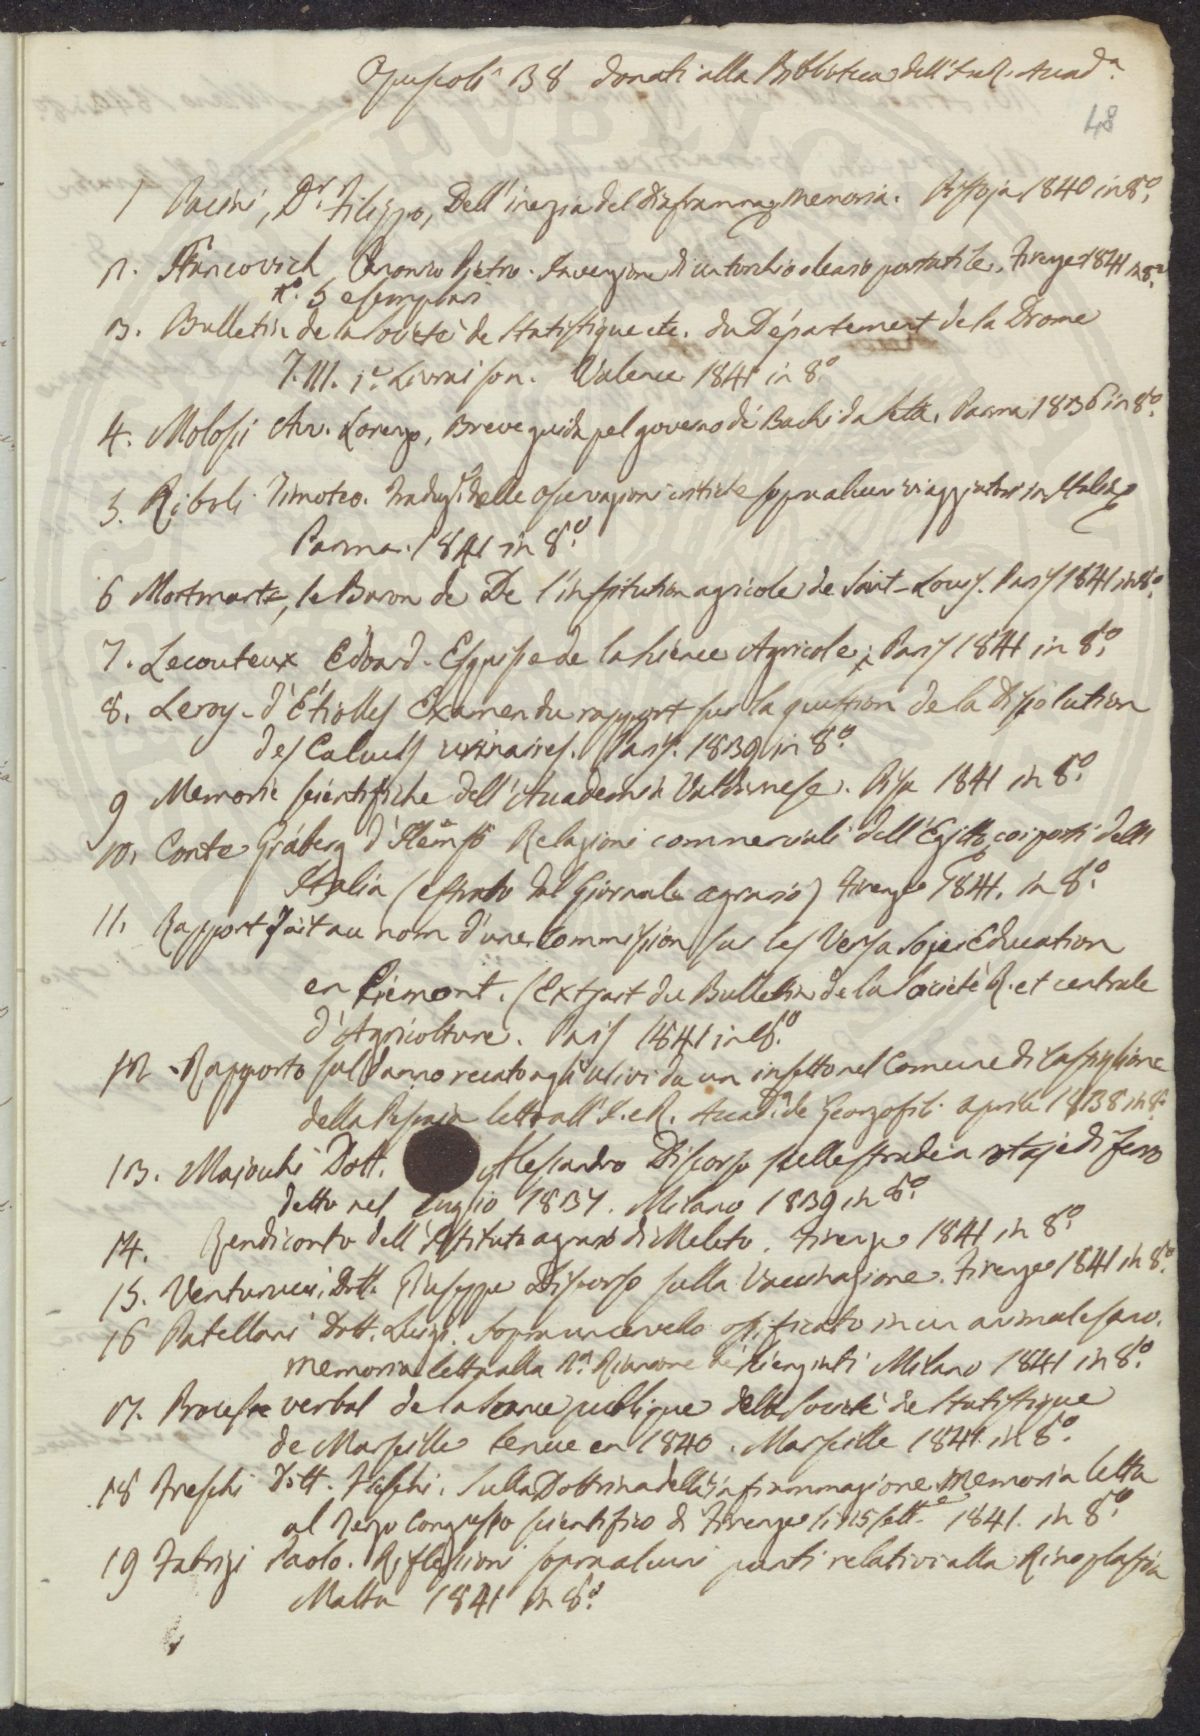 Opuscoli 38 donati alla Biblioteca dell'I. e R. Accad.ª
48
1 Pacini, D.r Filippo, Dell'inerzia del diaframma memoria. Pistoja 1840 in 8.º
2. Stancovich Canonico Pietro. Invenzione di un torchio oleario portatile. Firenze 1841 in 8.º
n.º 5 esemplari
3. Bulletin de la Société de Statistique etc. du Département de la Drome
T. III. 1.e Livraison. Valence 1841 in 8.º
4. Molossi Avv. Lorenzo, Breve guida pel governo de' Bachi da seta. Parma 1836 in 8.º
5. Riboli Timoteo. Traduz.e delle osservazioni critiche sopra alcuni viaggiatori in Italia
Parma. 1841 in 8.º
6 Mortmarte, le Baron de De l'institution agricole de Saint-Louis. Paris 1841 in 8.º
7. Lecouteux Edouard. Esquisse de la Science Agricole; Paris 1841 in 8.º
8. Leroy-d'Étiolles Examen du rapport sur la question de la Dissolution
des Calculs urinaires. Paris. 1839 in 8.º
9 Memorie scientifiche dell'Accademia Valdarnese. Pisa 1841 in 8.º
10. Conte Gråberg d'Hemsö Relazioni commerciali dell'Egitto coi porti dell'
Italia (estratto dal Giornale agrario) Firenze 1841. in 8.º
11. Rapport fait au nom d'une Commission sur les Vers a Soje Education
en Piemont. (Extrait du Bulletin de la Société R. et centrale
d'Agricolture. Paris 1841 in 8.º
12 Rapporto sul danno recato agli ulivi da un insetto nel Comune di Castiglione
della Pescaja letto all'I. e R. Accad.ª de Georgofili aprile 1838 in 8.º
13. Majocchi Dott. Alessandro Discorso sulle strade a rotaje di ferro
detto nel luglio 1837. Milano 1839 in 8.º
14. Rendiconto dell'Istituto agrario di Meleto. Firenze 1841 in 8.º
15. Venturucci Dott. Giuseppe Discorso sulla Vaccinazione. Firenze 1841 in 8.º
16 Patellani Dott. Luigi. Sopra un cervello ossificato in un animale sano.
memoria letta alla 2.ª Riunione de' Scienziati Milano 1841 in 8.º
17. Processe verbal de la Seance publique della Société de Statistique
de Marseille tenue en 1840. Marseille 1841. in 8.º
18 Freschi Dott. Sulla Dottrina della infiammazione memoria letta
al Terzo Congresso scientifico di Firenze li 25 Sett.e 1841. in 8.º
19 Fabrizi Paolo. Riflessioni sopra alcuni punti relativi alla Rinoplastia
Malta 1841 in 8.º